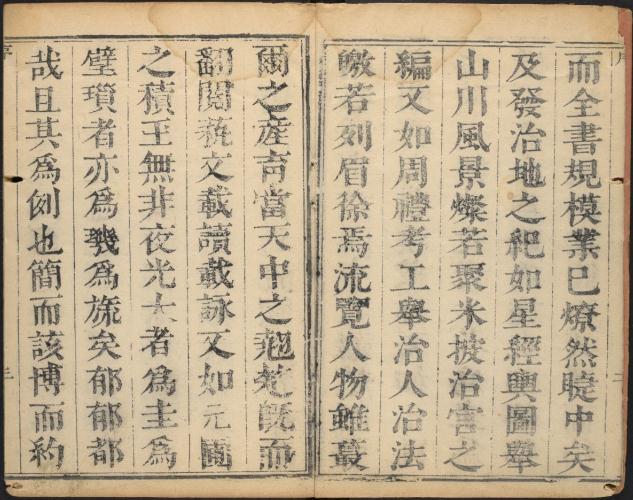 而全書規模業已燎然睫中矣
及發治地之紀如星經輿圖舉
山川風景燦若聚米披治官之
編又如周禮考工舉治人治法
皦若列眉徐焉流覽人物雖蕞
爾之產育當天中之翹楚旣而
翻閱藝文載讀載詠又如元圃
之積玉無非夜光大者為圭為
璧瑣者亦為璣為旒矣郁郁都
哉且其為刻也簡而該博而約